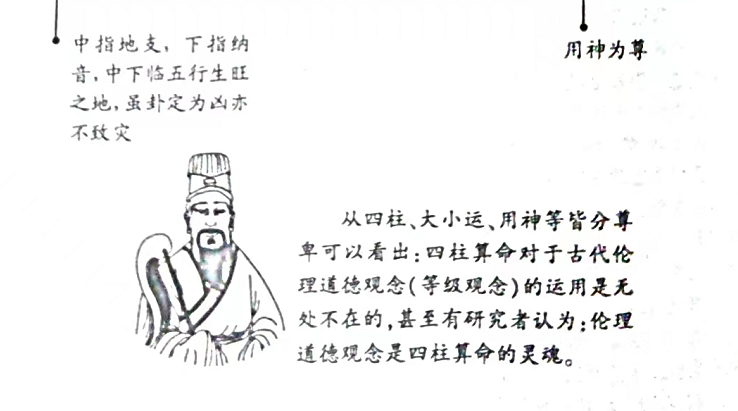 中指地支，下指纳
音，中下临五行生旺
之地，虽卦定为凶亦
不致灾
用神为尊
从四柱、大小运、用神等皆分尊
卑可以看出：四柱算命对于古代伦
理道德观念(等级观念)的运用是无
处不在的，甚至有研究者认为：伦理
道德观念是四柱算命的灵魂。